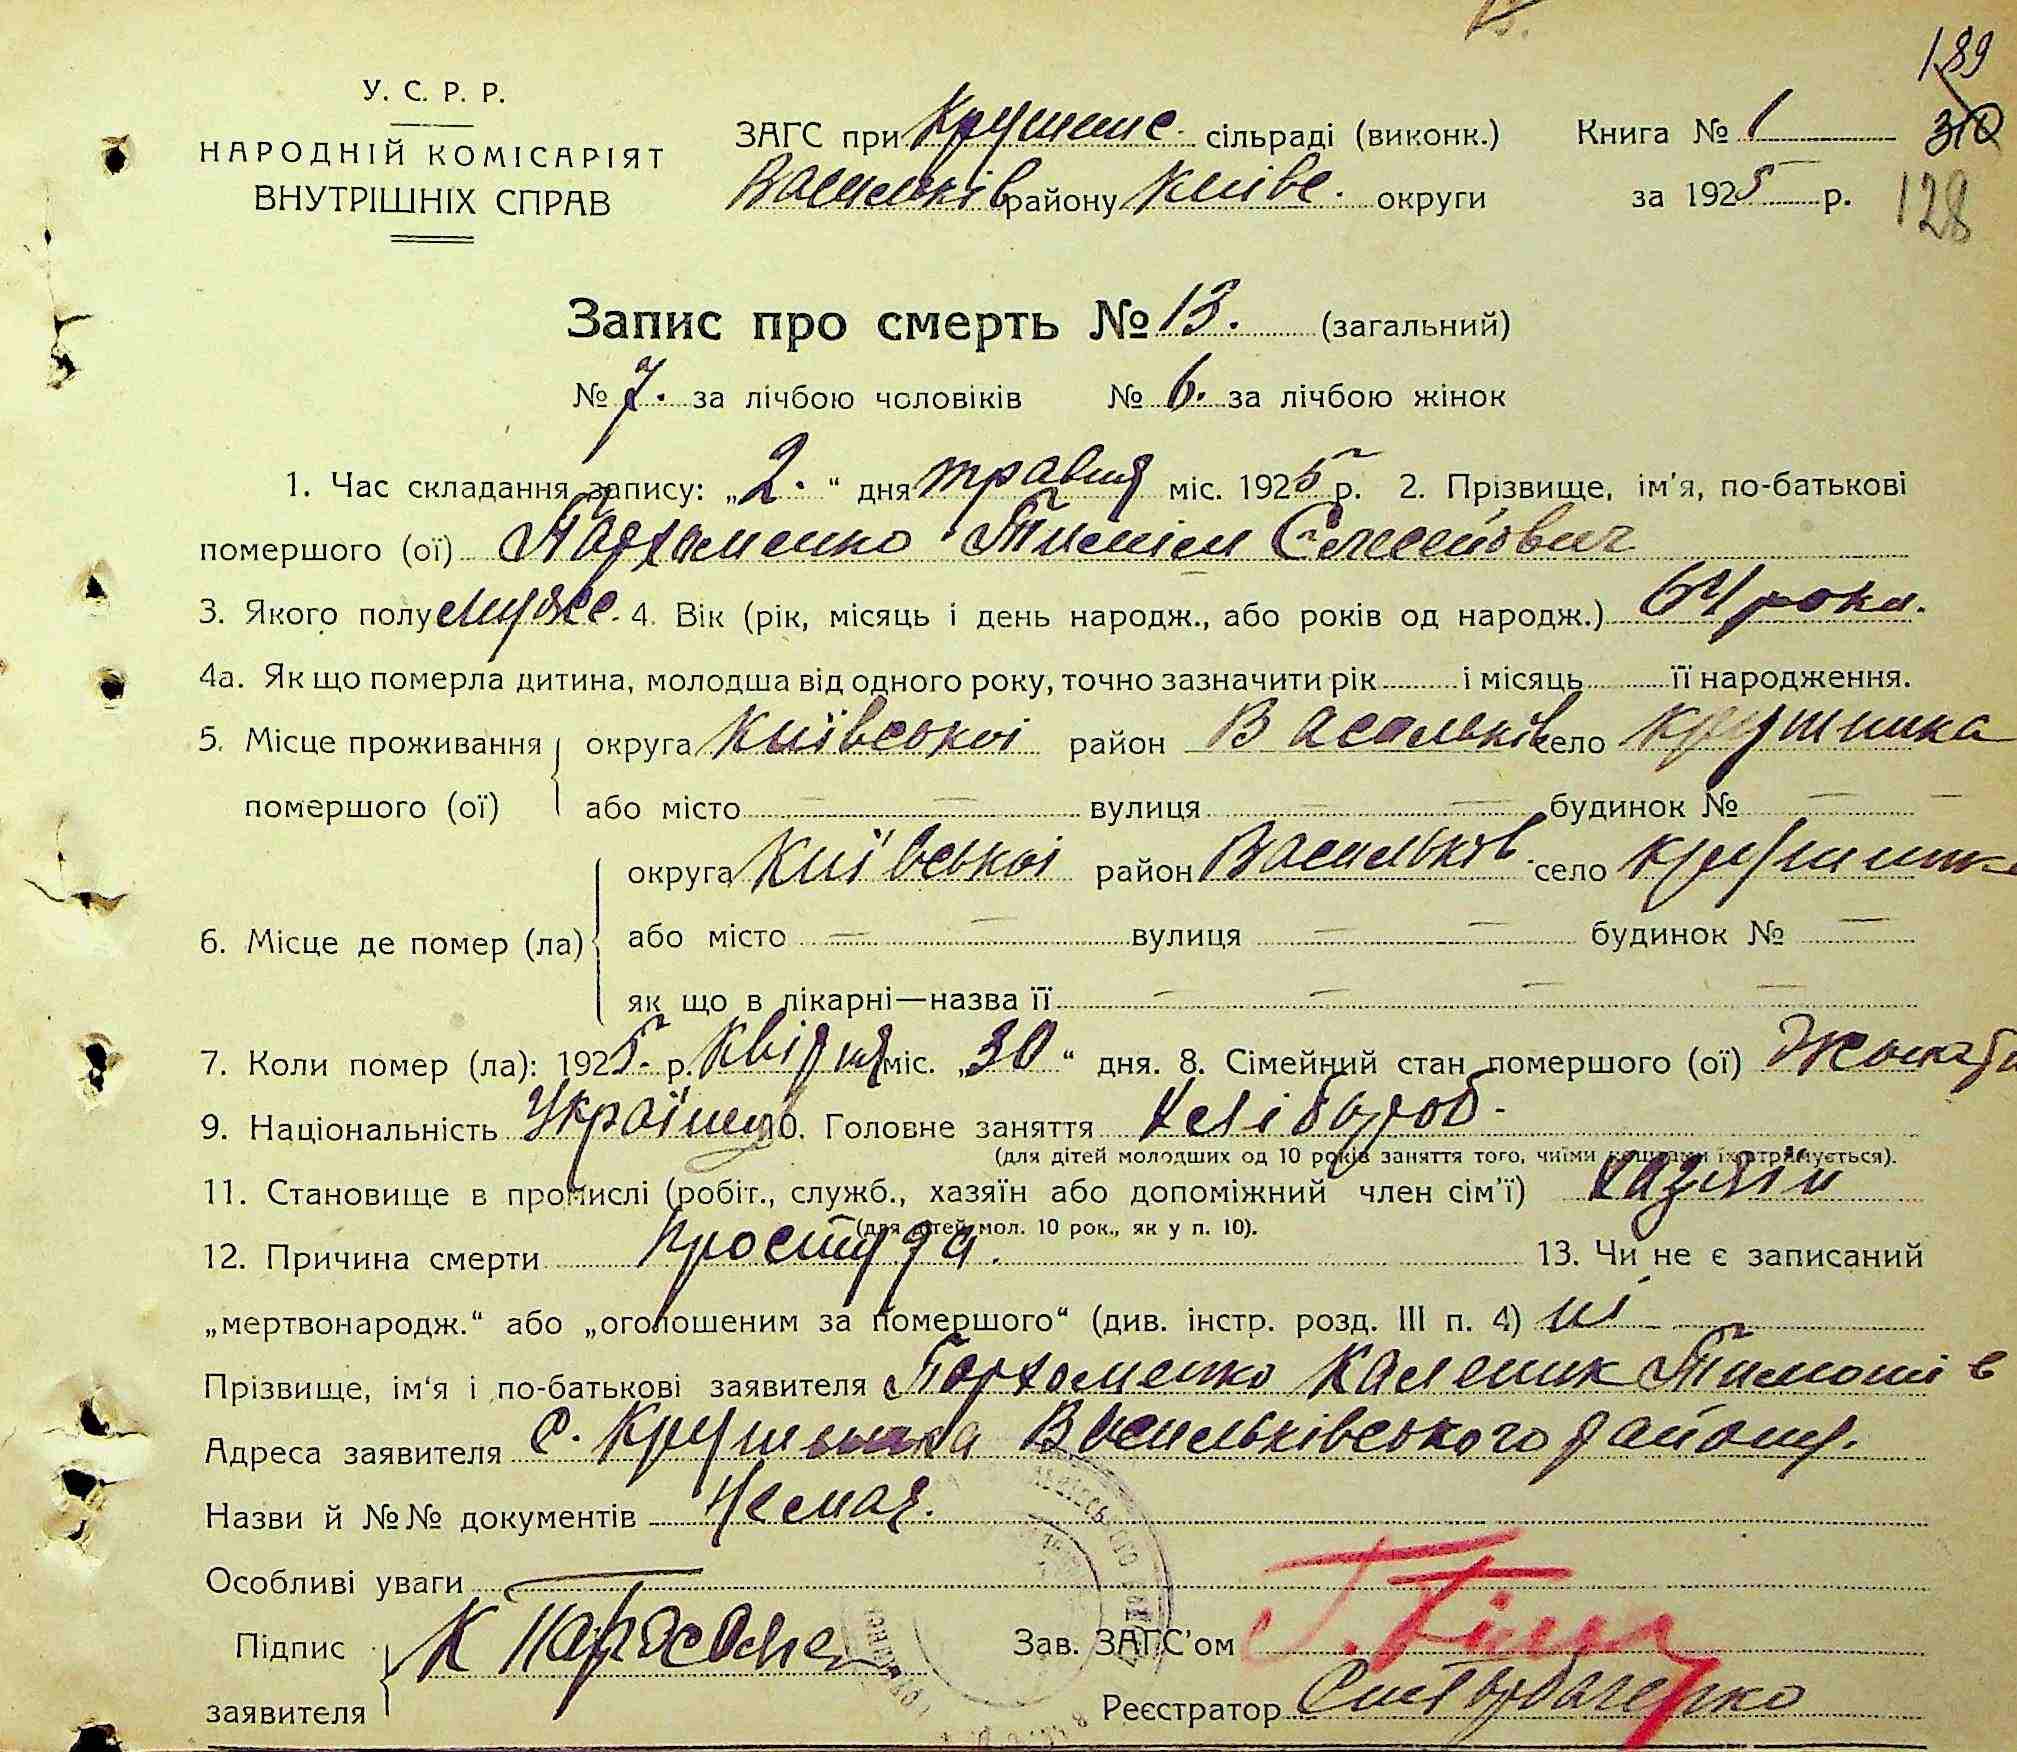 189
310
128
У. С. Р. Р.
НАРОДНІЙ КОМІСАРІЯТ
ВНУТРІШНІХ СПРАВ
ЗАГС при Крушинс. сільраді (виконк.)
Васильків району Київс. округи
Книга № 1
за 1925 р.
Запис про смерть № 13. (загальний)
№ 7. за лічбою чоловіків № 6. за лічбою жінок
1. Час складання запису: „2.“ дня травня міс. 1925 р. 2. Прізвище, ім'я, по-батькові
помершого (ої) Пархоменко Тимпіш
3. Якого полу мужс. 4. Вік (рік, місяць і день народж., або років од народж.) 64 роки.
4а. Як що померла дитина, молодша від одного року, точно зазначити рік і місяць її народження.
5. Місце проживання округа Київської район Васильків село Крушинка
помершого (ої) або місто — — вулиця — — будинок № — —
округа Київської район Васильків. село Крушинка
6. Місце де помер (ла) або місто — — вулиця — — будинок № —
як що в лікарні—назва її — — — —
7. Коли помер (ла): 1925 р. Квітня міс. „30“ дня. 8. Сімейний стан помершого (ої) Жонати
9. Національність Українец 10. Головне заняття Хлібороб.
(для дітей молодших од 10 років заняття того, чиїми коштами їх утримується).
11. Становище в промислі (робіт., служб., хазяїн або допоміжний член сім'ї) хазяін
(для дітей мол. 10 рок., як у п. 10).
12. Причина смерти простуда. 13. Чи не є записаний
„мертвонародж.“ або „оголошеним за помершого“ (див. інстр. розд. III п. 4) ні
Прізвище, ім'я і по-батькові заявителя Пархоменко Каленик Тимошів
Адреса заявителя с. Крушинка Васильківського району.
Назви й №№ документів Немає.
Особливі уваги
Підпис
заявителя
К
Зав. ЗАГС'ом
Реєстратор